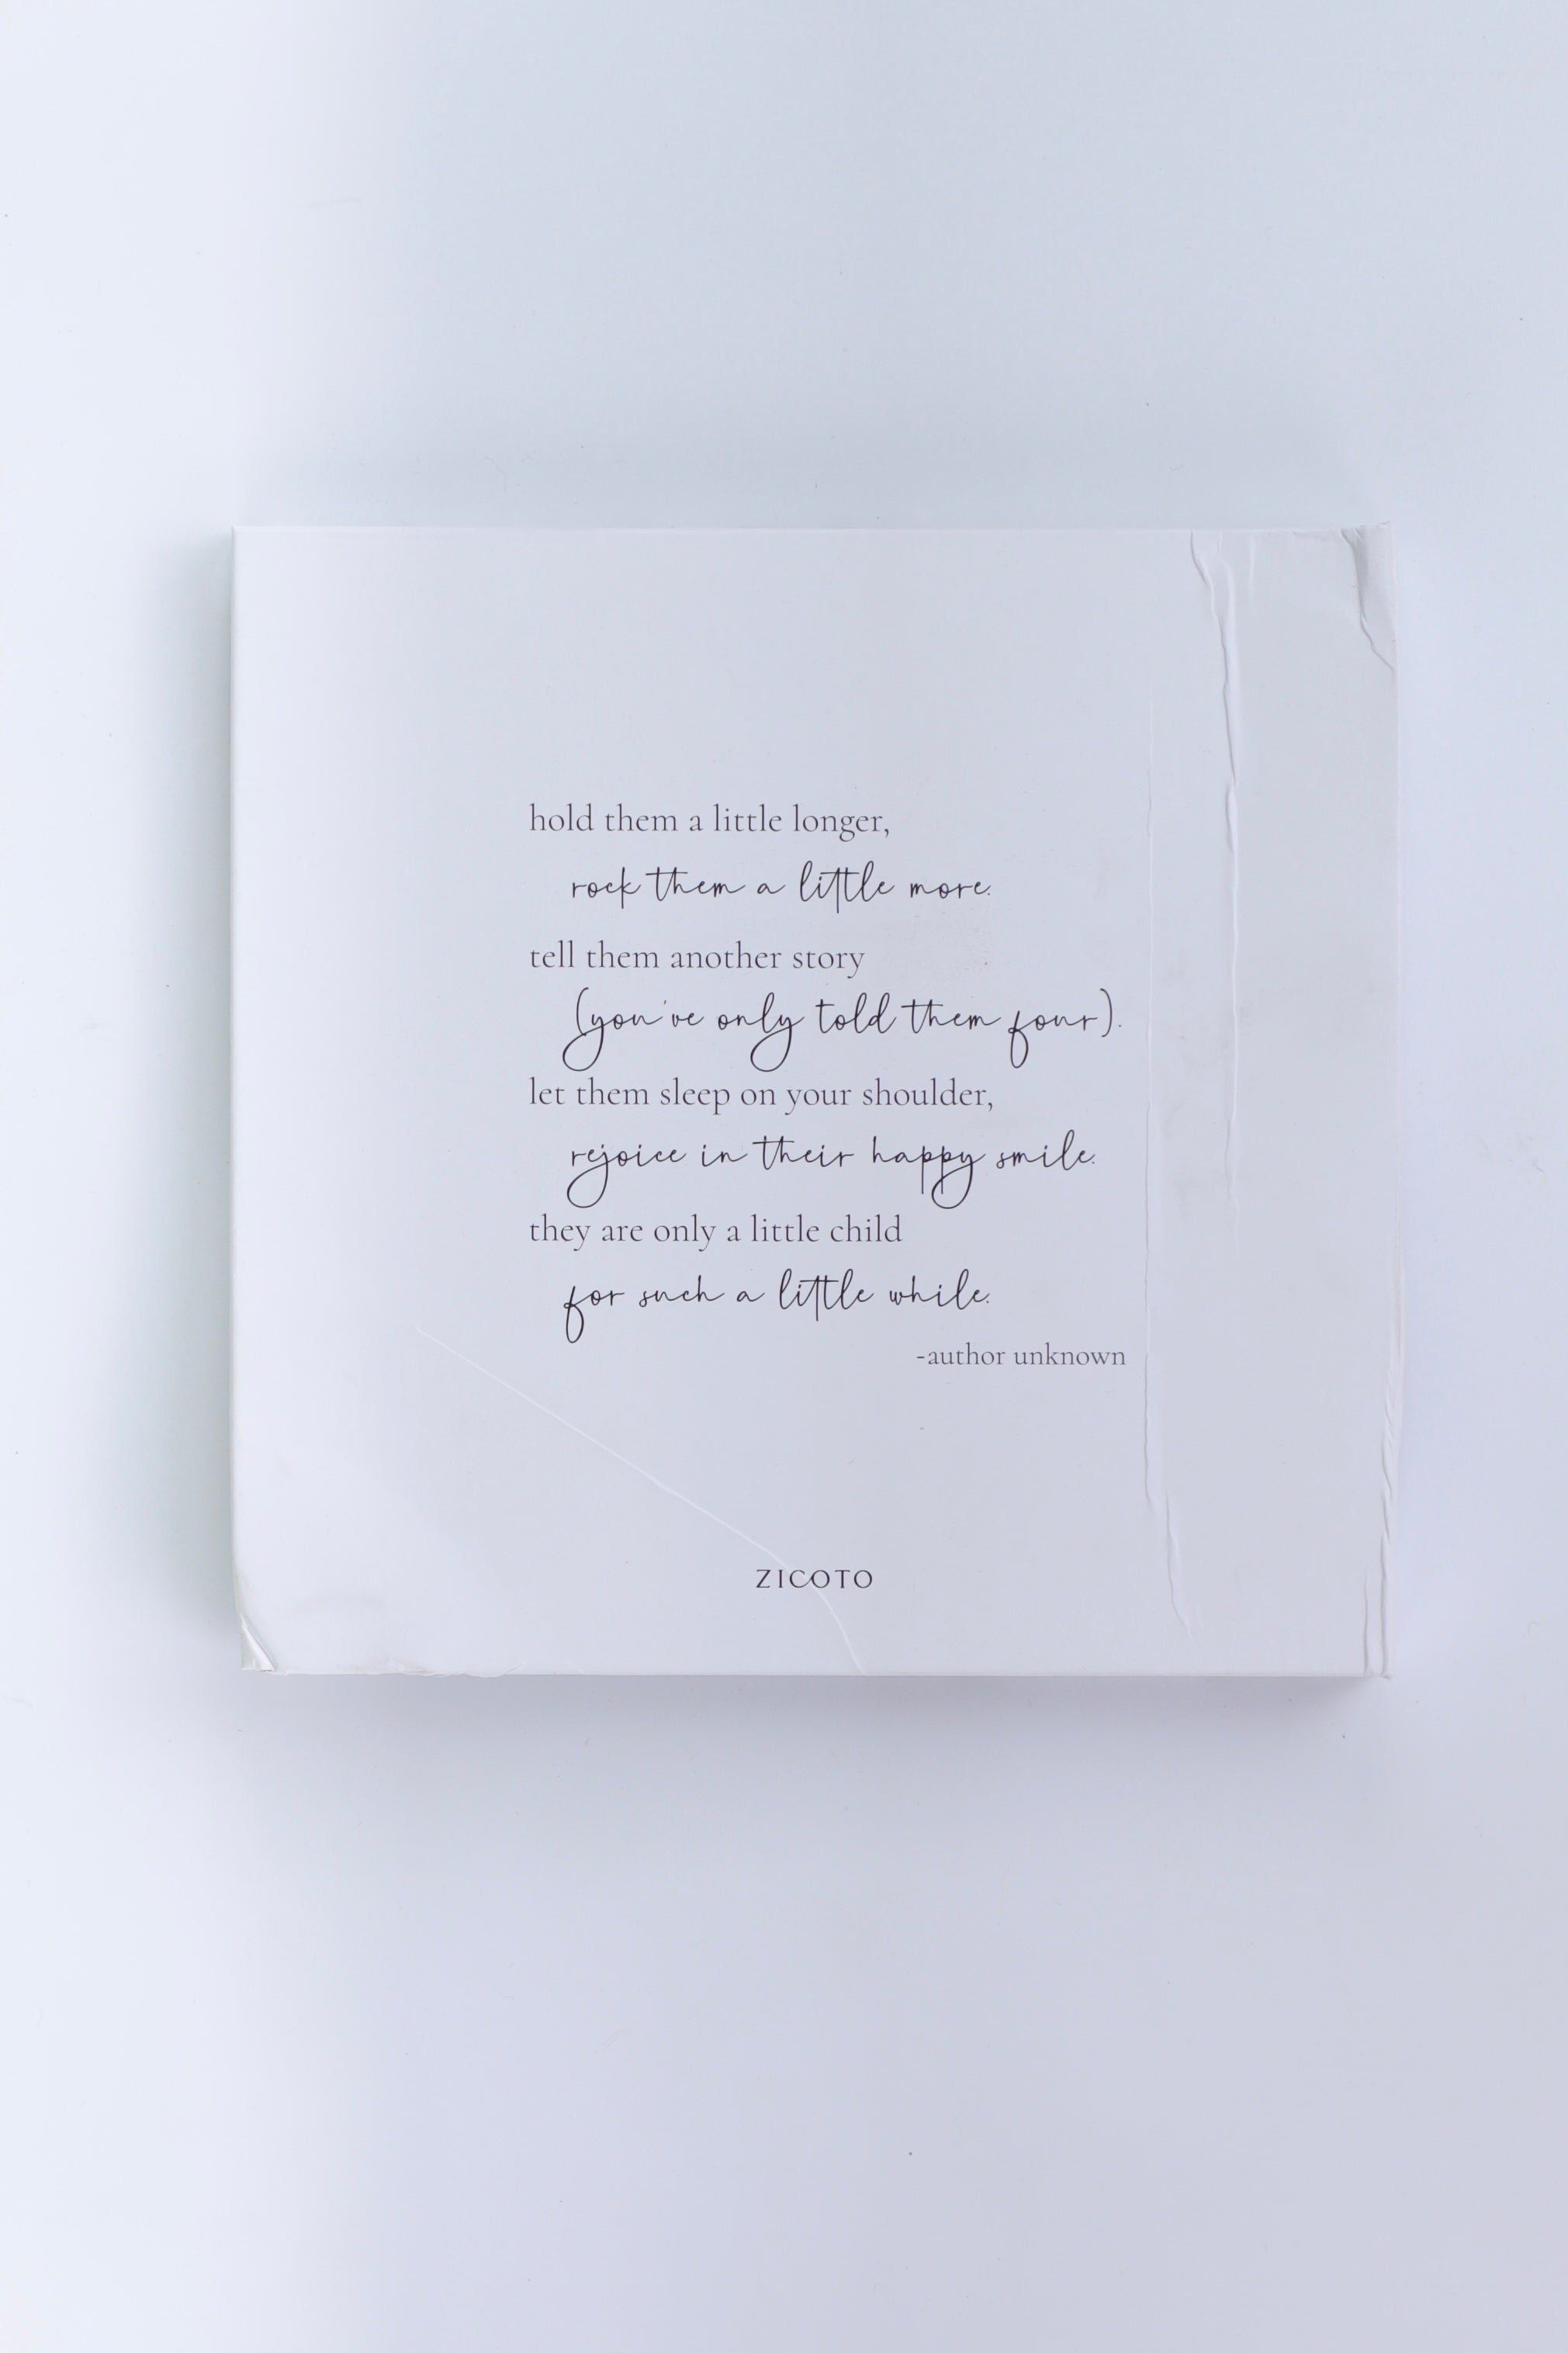 hold them a little longer,
rock them a little more.
tell them another story
(you've only told them four).
let them sleep on your shoulder,
rejoice in their happy smile.
they are only a little child
for such a little while.
-author unknown
ZICOTO